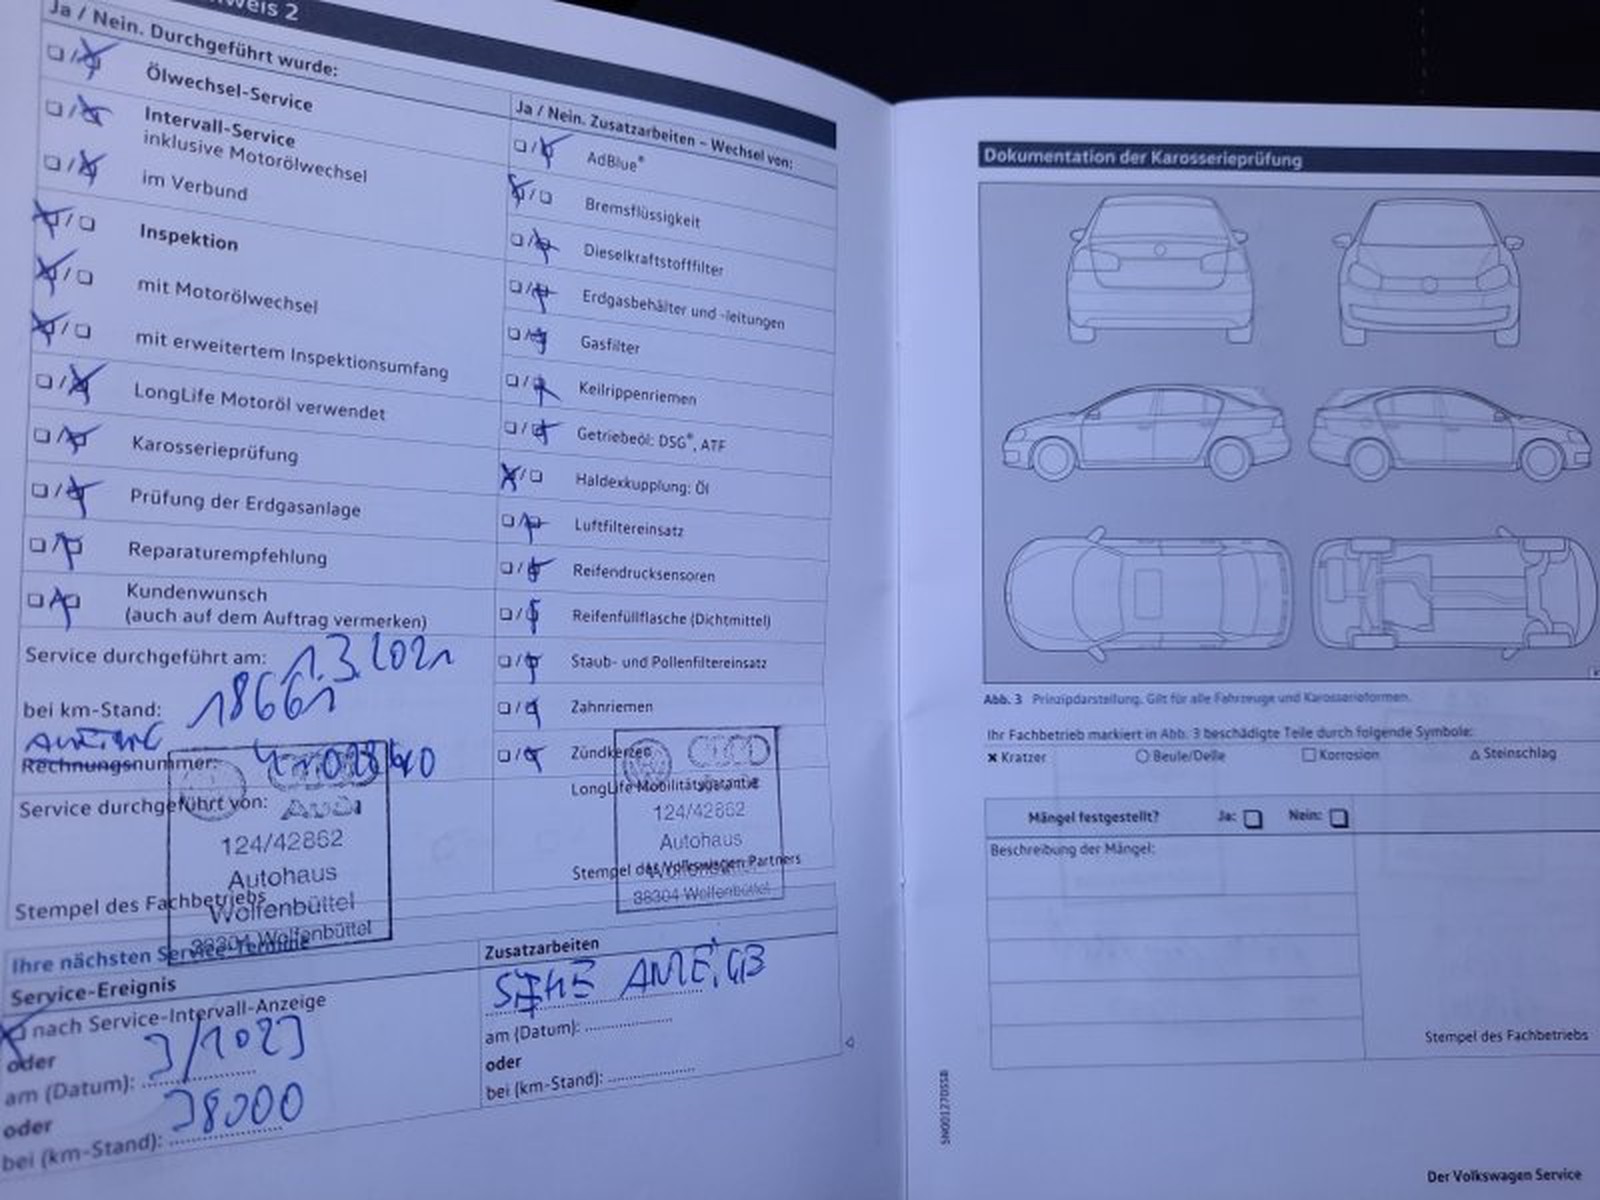 weis 2
Ja / Nein. Durchgeführt wurde:
Ölwechsel-Service
Intervall-Service
inklusive Motorölwechsel
im Verbund
Inspektion
mit Motorölwechsel
mit erweitertem Inspektionsumfang
LongLife Motoröl verwendet
Karosserieprüfung
Prüfung der Erdgasanlage
Reparaturempfehlung
Kundenwunsch
(auch auf dem Auftrag vermerken)
Service durchgeführt am: 1.3.2021
bei km-Stand: 18661
Rechnungsnummer:
Service durchgeführt von:
Audi
124/42862
Autohaus
Wolfenbüttel
38304 Wolfenbüttel
Stempel des Fachbetriebs
Ja / Nein. Zusatzarbeiten – Wechsel von:
AdBlue®
Bremsflüssigkeit
Dieselkraftstofffilter
Erdgasbehälter und -leitungen
Gasfilter
Keilrippenriemen
Getriebeöl: DSG®, ATF
Haldexkupplung: Öl
Luftfiltereinsatz
Reifendrucksensoren
Reifenfüllflasche (Dichtmittel)
Staub- und Pollenfiltereinsatz
Zahnriemen
Zündkerzen
LongLife Mobilitätsgarantie
124/42862
Autohaus
Stempel des Volkswagen Partners
38304 Wolfenbüttel
Ihre nächsten Service-Termine
Service-Ereignis
nach Service-Intervall-Anzeige
oder
am (Datum): 3/2023
oder
bei (km-Stand): 38000
Zusatzarbeiten
am (Datum):
oder
bei (km-Stand):
Dokumentation der Karosserieprüfung
Abb. 3 Prinzipdarstellung. Gilt für alle Fahrzeuge und Karosserieformen.
Ihr Fachbetrieb markiert in Abb. 3 beschädigte Teile durch folgende Symbole:
Kratzer Beule/Delle Korrosion Steinschlag
Mängel festgestellt? Ja: Nein:
Beschreibung der Mängel:
Stempel des Fachbetriebs
Der Volkswagen Service